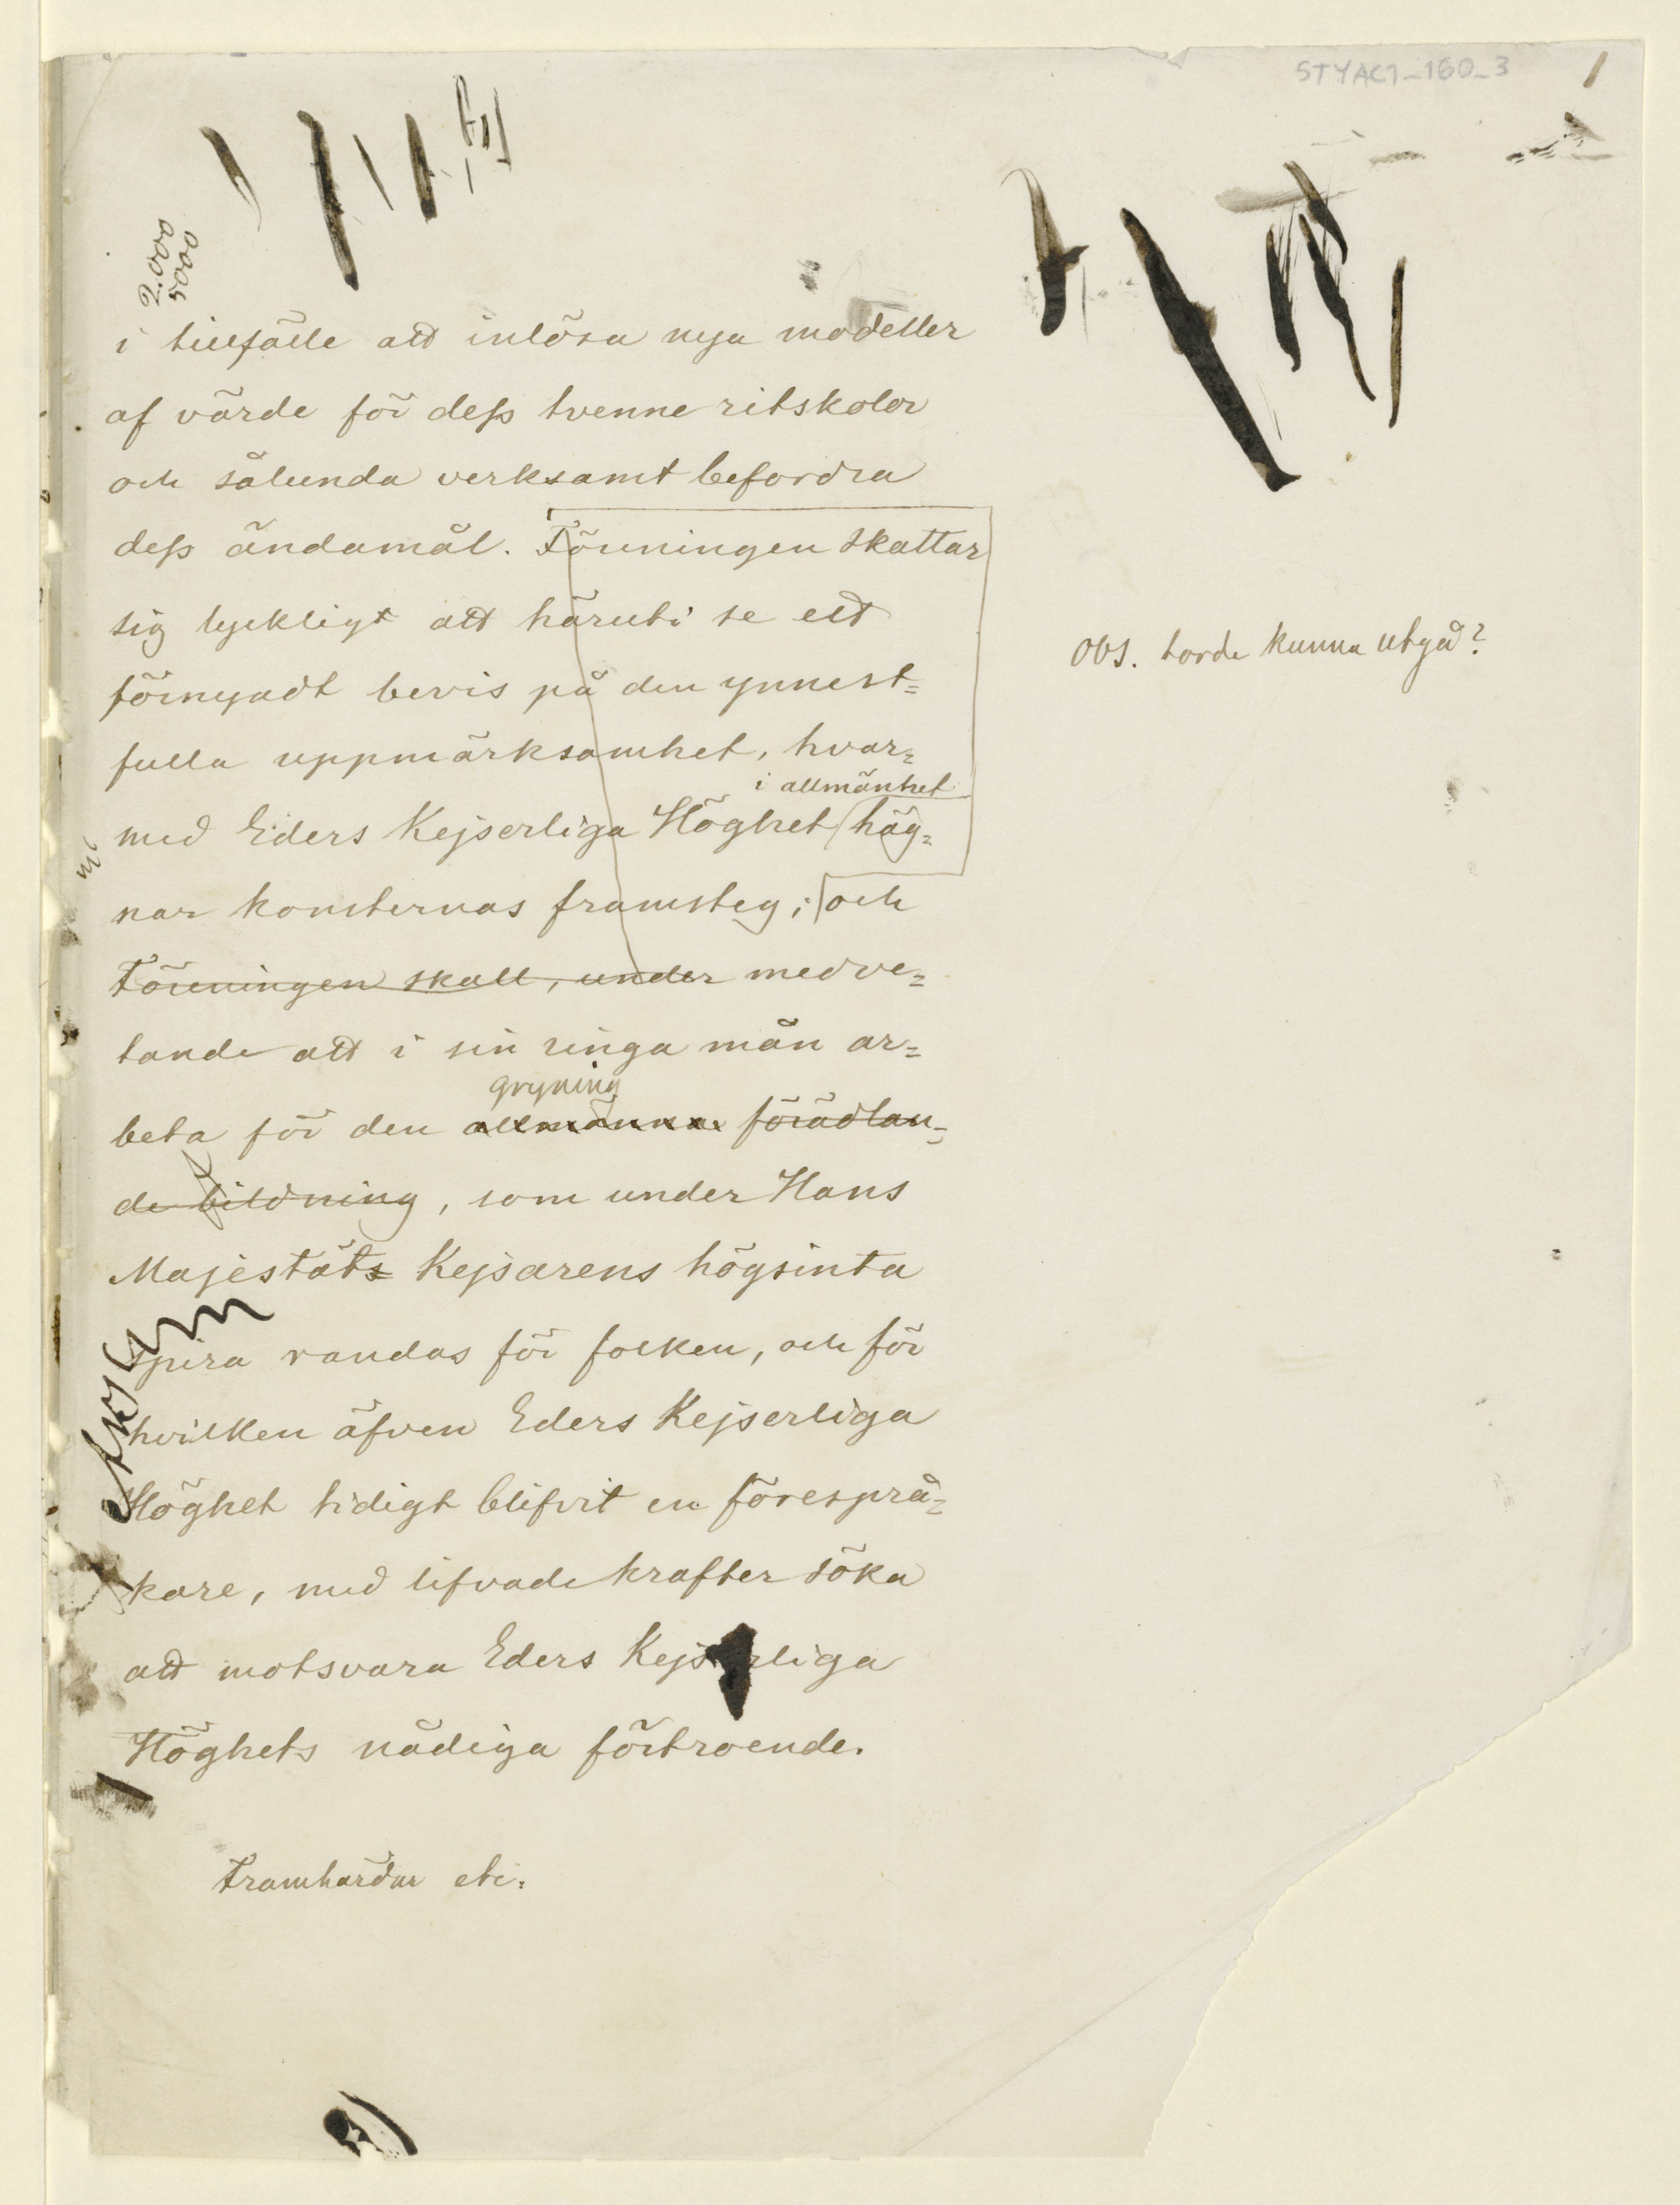 STYAC1_160_3
1
2.000
5000
i tillfälle att inlösa nya modeller
af värde för dess tvenne ritskolor
och sålunda verksamt befordra
dess ändamål. Föreningen skattar
sig lyckligt att häruti se ett
förnyadt bevis på den ynnest=
fulla uppmärksamhet, hvar=
i allmänhet
med Eders Kejserliga Höghet häg=
nar konsternas framsteg; och
Föreningen skall, under medve=
tande att i sin ringa mån ar=
gryning
beta för den allmänna förädlan=
de bildning, som under Hans
Majestäts Kejsarens högsinta
spira randas för folken, och för
hvilken äfven Eders Kejserliga
Höghet tidigt blifvit en föresprå=
kare, med lifvade krafter söka
att motsvara Eders Kejserliga
Höghets nådiga förtroende.
Framhärdar etc.
Obs. torde kunna utgå?